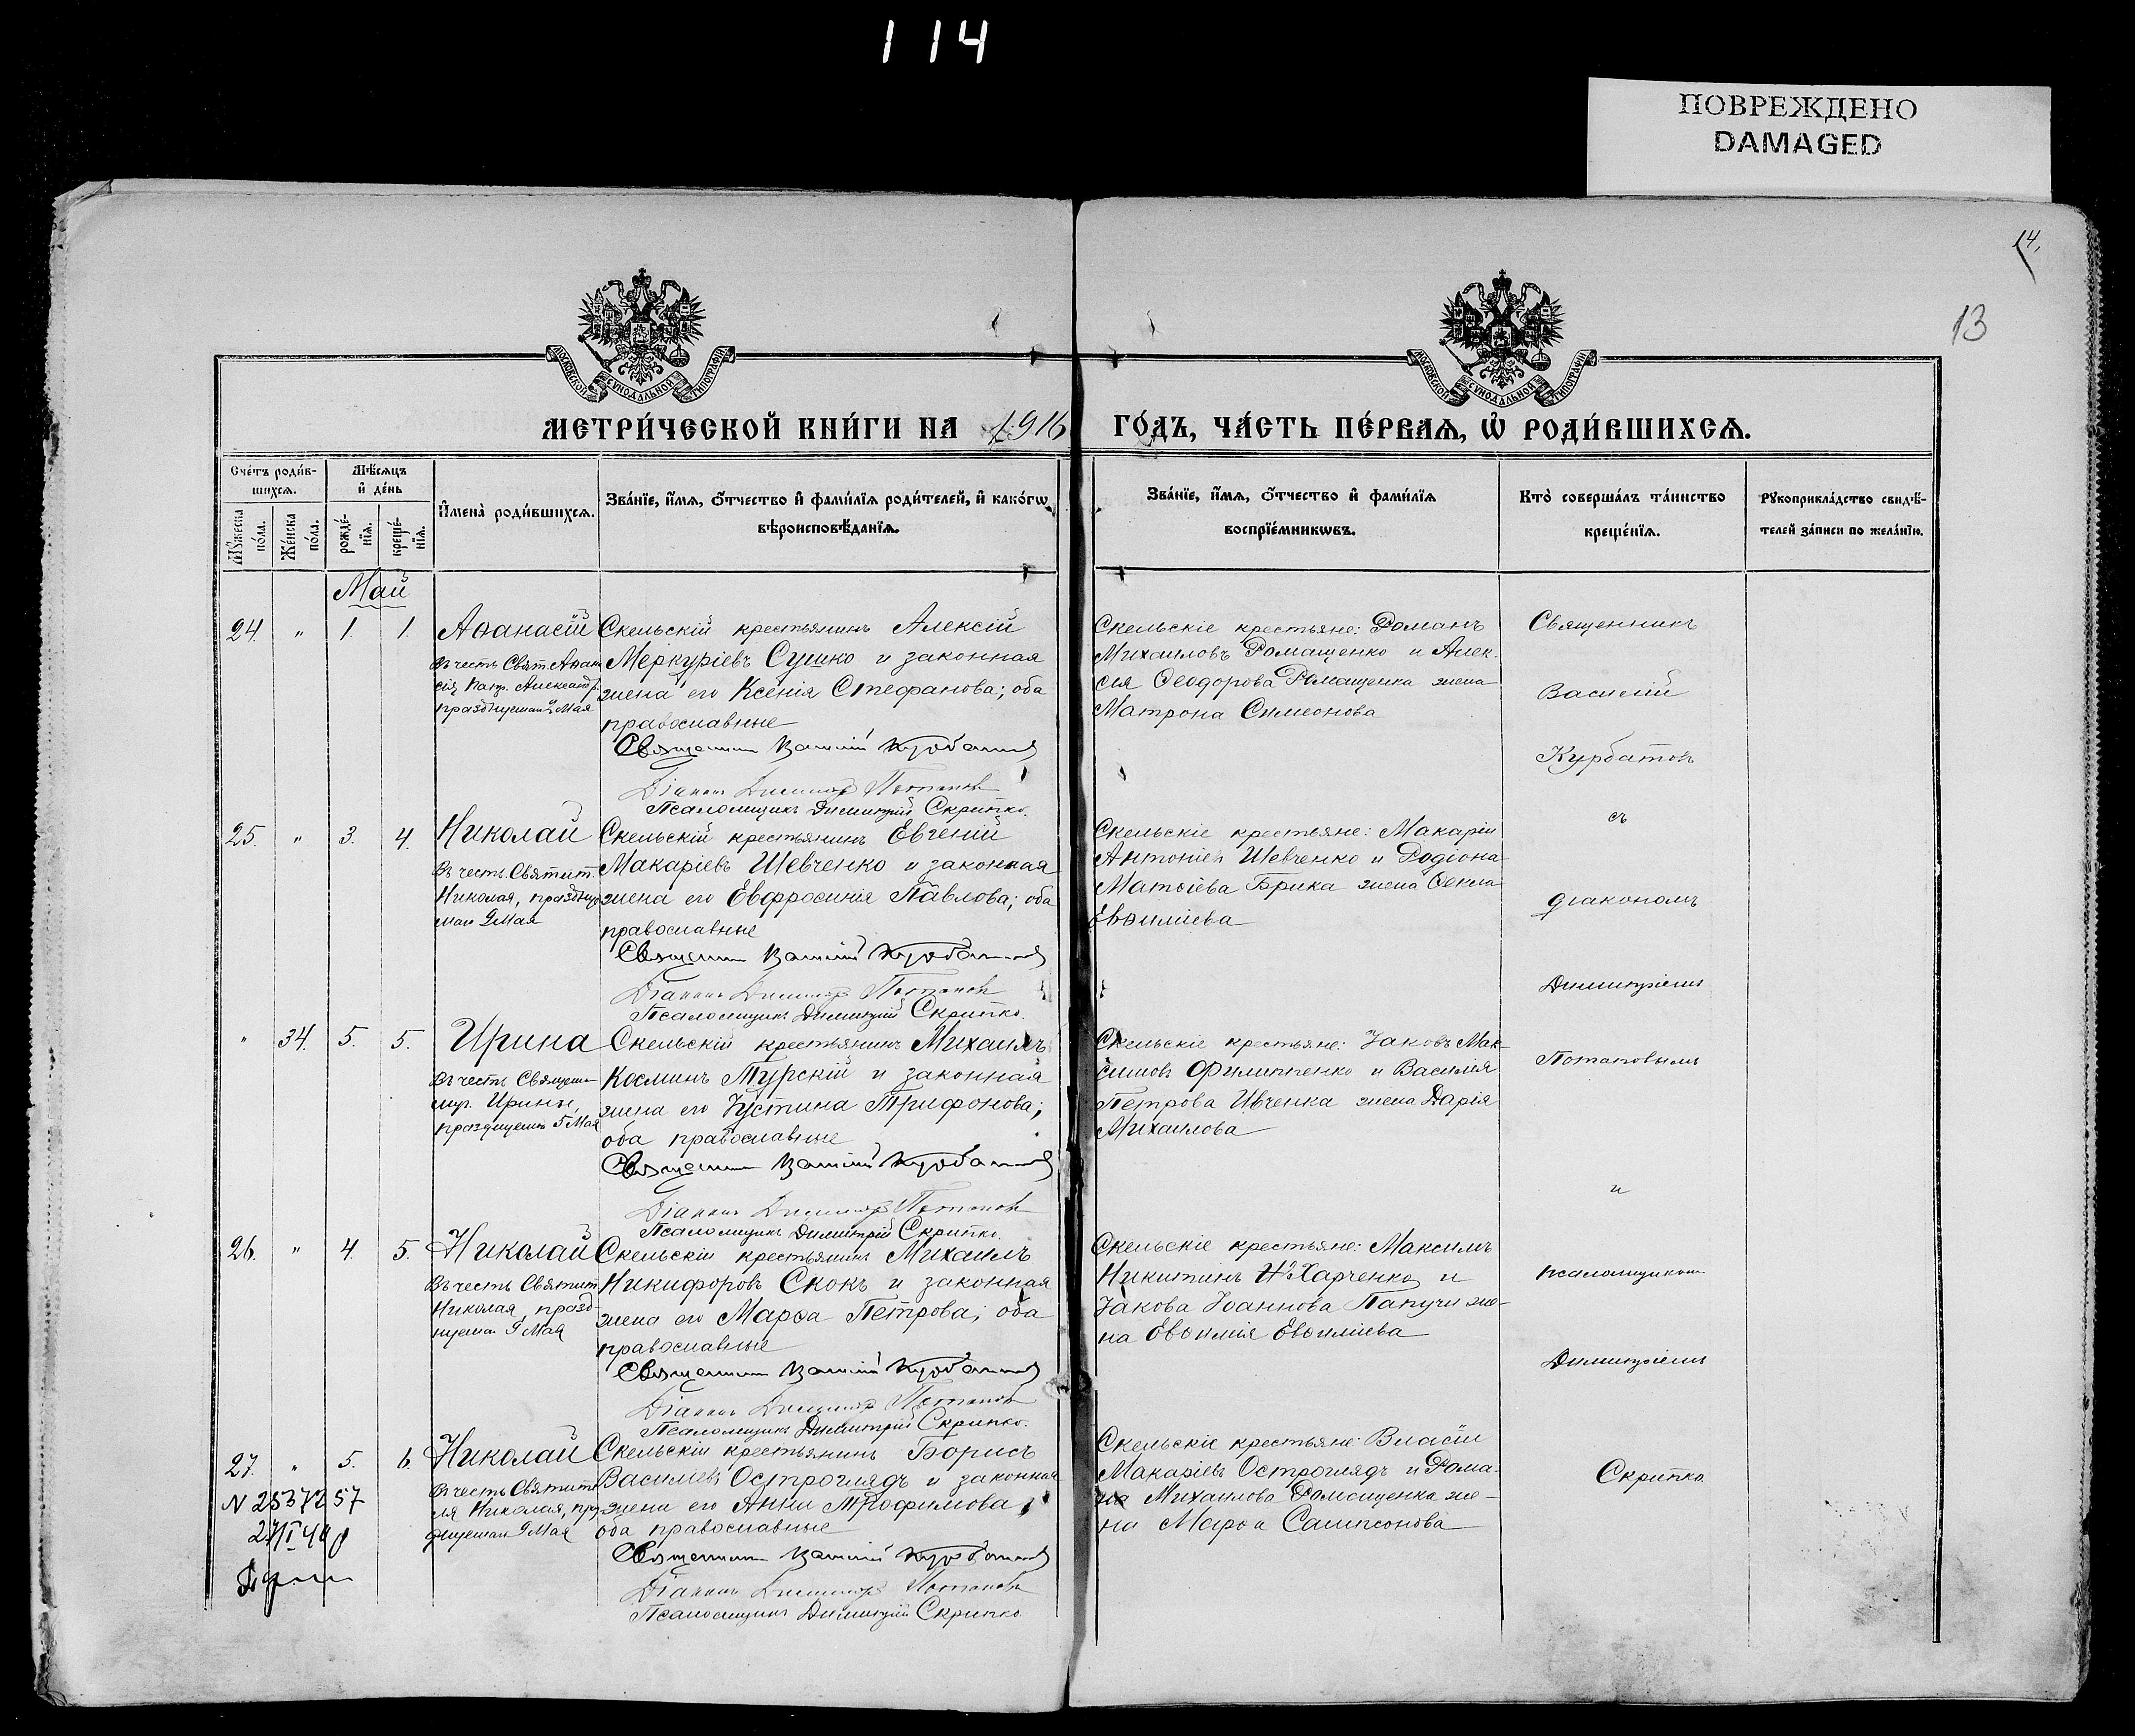 114
ПОВРЕЖДЕНО
DAMAGED
14.
13
МОСКОВСКОЙ СѴНОДАЛЬНОЙ ТИПОГРАФІИ
МОСКОВСКОЙ СѴНОДАЛЬНОЙ ТИПОГРАФІИ
МЕТРИ́ЧЕСКОЙ КНИ́ГИ НА 1916 ГО́ДЪ, ЧА́СТЬ ПЕ́РВАѦ, Ѡ҆ РОДИ́ВШИХСѦ.
Сче́тъ роди́в-
шихсѧ.
Мѣ́сѧцъ
и҆ де́нь
Мꙋ́жеска по́ла.
Же́нска по́ла.
рожде́-
нїѧ.
креще́-
нїѧ.
И҆мена̀ роди́вшихсѧ.
Зва́нїе, и҆́мѧ, ѻ҆́тчество и҆ фами́лїѧ роди́телей, и҆ како́гѡ
вѣроисповѣ́данїѧ.
Зва́нїе, и҆́мѧ, ѻ҆́тчество и҆ фами́лїѧ
воспрїе́мникѡвъ.
Кто̀ соверша́лъ та́инство
креще́нїѧ.
Рꙋкоприкла́дство свидѣ́-
телей за́писи по жела́нїю.
Май
24. " 1. 1.
Аѳанасій
въ честь Свят. Аѳана
сія, Патр. Александр.
празднуемаго 2 Мая
Скельскій крестьянинъ Алексій
Меркуріевъ Сушко и законная
жена его Ксенія Стефанова; оба
православные
Священник Василій Курбатов
Діаконъ Димитр Потапов
Псаломщикъ Димитрій Скрипко.
Скельскіе крестьяне: Романъ
Михаиловъ Ромащенко и Алек-
сія Ѳеодорова Ромащенка жена
Матрона Симеонова
Священникъ
Василій
Курбатовъ
съ
діакономъ
Димитріемъ
Потаповымъ
и
псаломщикомъ
Димитріемъ
Скрипко
25. " 3. 4.
Николай
Въ честь Святит.
Николая, праздну
маго 9 Мая
Скельскій крестьянинъ Евгеній
Макаріевъ Шевченко и законная
жена его Евфросинія Павлова; оба
православные
Священник Василій Курбатов
Діаконъ Димитр Потапов
Псаломщикъ Димитрій Скрипко.
Скельскіе крестьяне: Макарій
Антоніевъ Шевченко и Родіона
Матѳіева Брика жена Ѳекла
Евѳиміева
" 34. 5. 5.
Ирина
Въ честь Священ
муч. Ирины,
празднуемой 5 Мая
Скельскій крестьянинъ Михаилъ
Косминъ Турскій и законная
жена его Іустина Трифонова;
оба православные
Священник Василій Курбатов
Діаконъ Димитр Потапов
Псаломщикъ Димитрій Скрипко.
Скельскіе крестьяне: Іаковъ Мак-
симовъ Филиппенко и Василія
Петрова Ивченка жена Дарія
Михаилова
26. " 4. 5.
Николай
Въ честь Святит.
Николая, празд-
нуемаго 9 Мая
Скельскій крестьянинъ Михаилъ
Никифоровъ Скокъ и законная
жена его Марѳа Петрова; оба
православные
Священник Василій Курбатов
Діаконъ Димитр Потапов
Псаломщикъ Димитрій Скрипко.
Скельскіе крестьяне: Максимъ
Никитинъ Харченко и
Іакова Іоаннова Папучи же-
на Евѳимія Евѳиміева
27. " 5. 6.
Николай
Въ честь Святите
ля Николая, пра
зднуемаго 9 Мая
N 2537257
Скельскій крестьянинъ Борисъ
Василіевъ Остроглядъ и законная
жена его Анна Трофимова;
оба православные
Священник Василій Курбатов
Діаконъ Димитр Потапов
Псаломщикъ Димитрій Скрипко
Скельскіе крестьяне: Власій
Макаріевъ Остроглядъ и Рома-
на Михаилова Ромащенка же-
на Марѳа Сампсонова